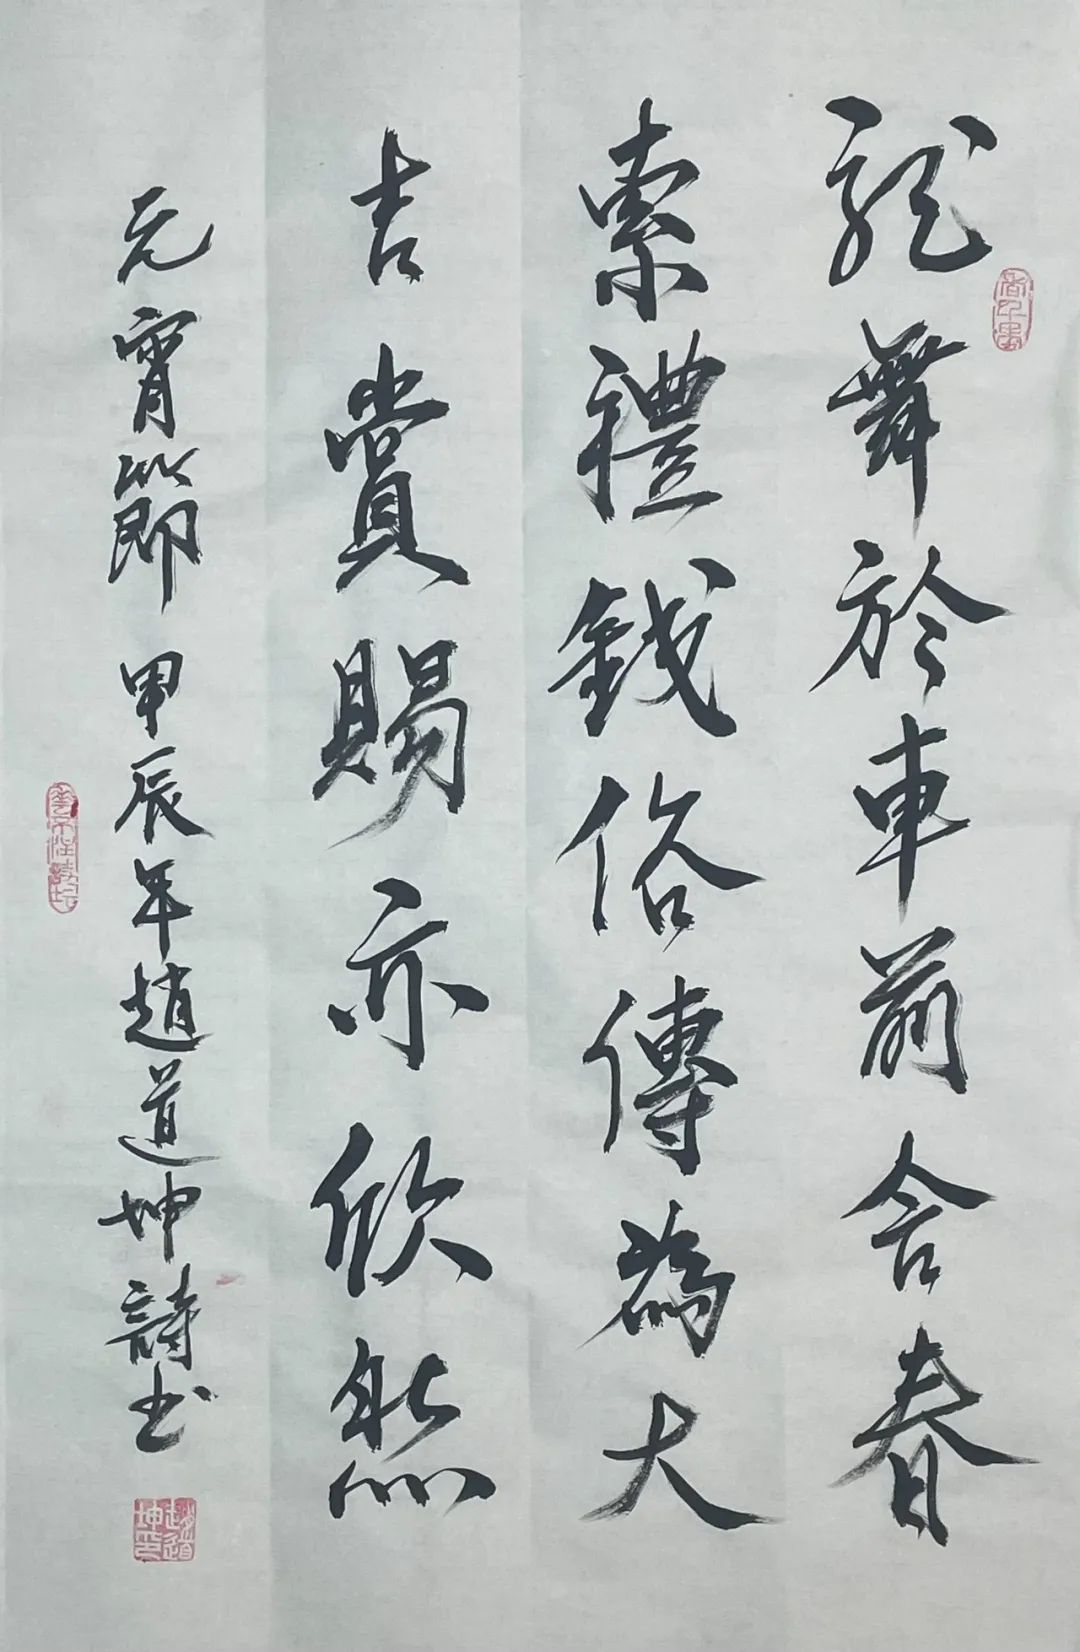 龍舞於車前舍春
索禮錢俗傳為大
吉賞賜亦欣然
元宵節甲辰年趙道坤詩书
趙道坤印